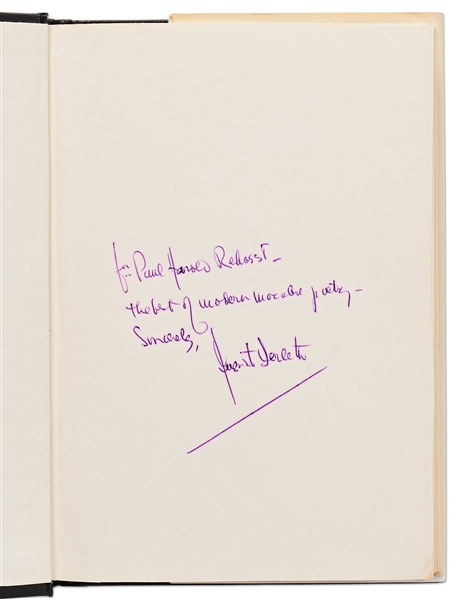 for Paul Harold Rehorst –
the best of modern macabre poetry –
Sincerely,
August Derleth